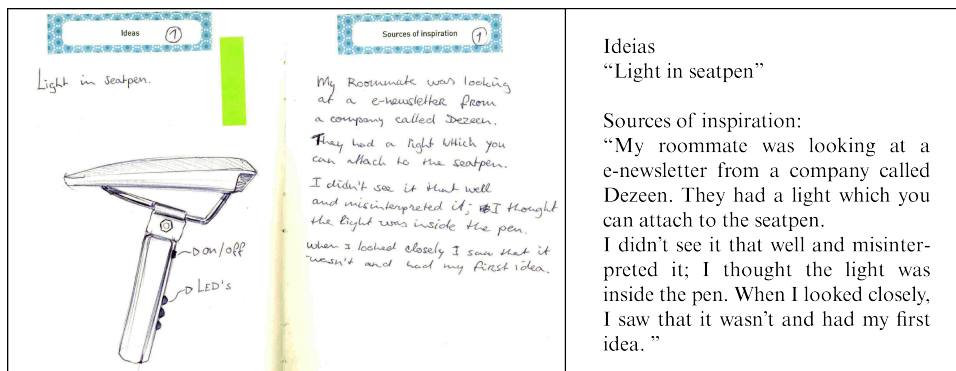 Ideas
1
Light in seatpen.
on/off
LED's
Sources of inspiration
1
My Roommate was looking
at a e-newsletter from
a company called Dezeen.
They had a light which you
can attach to the seatpen.
I didn't see it that well
and misinterpreted it; I thought
the light was inside the pen.
When I looked closely I saw that it
wasn't and had my first idea.
Ideias
“Light in seatpen”
Sources of inspiration:
“My roommate was looking at a
e-newsletter from a company called
Dezeen. They had a light which you
can attach to the seatpen.
I didn't see it that well and misinter-
preted it; I thought the light was
inside the pen. When I looked closely,
I saw that it wasn't and had my first
idea. ”